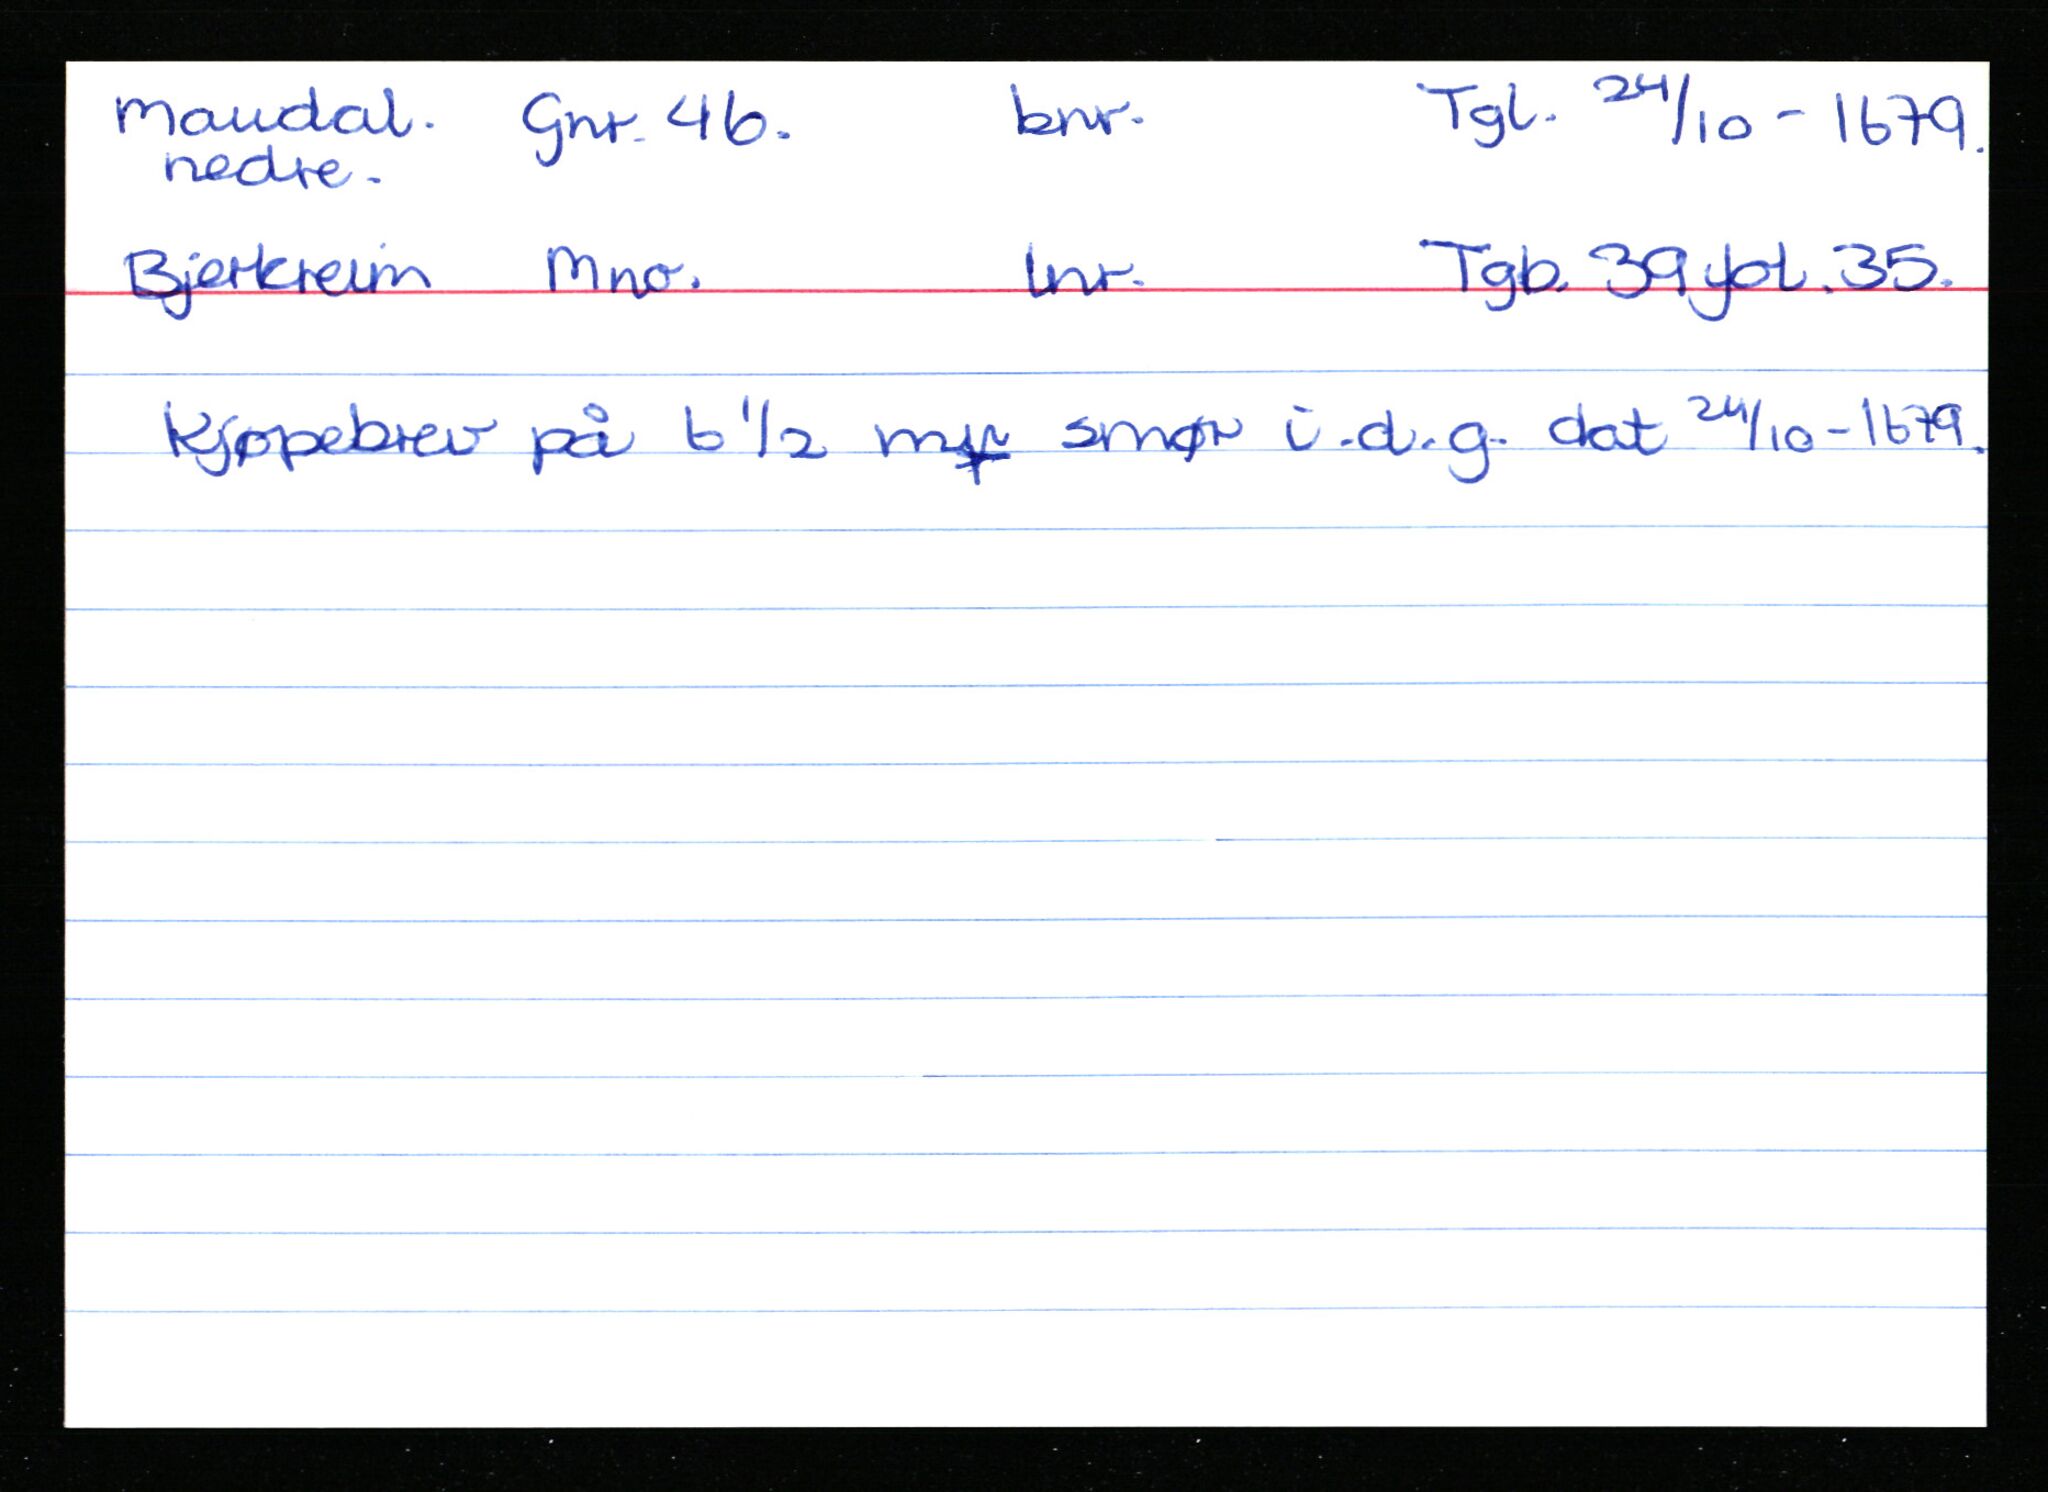 Maudal. Gnr. 46. bnr. Tgl. 24/10 - 1679.
nedre.
Bjerkreim Mno. lnr. Tgb. 39 fol. 35.
Kjøpebrev på 6 1/2 smør i.d.g. dat 24/10 - 1679.